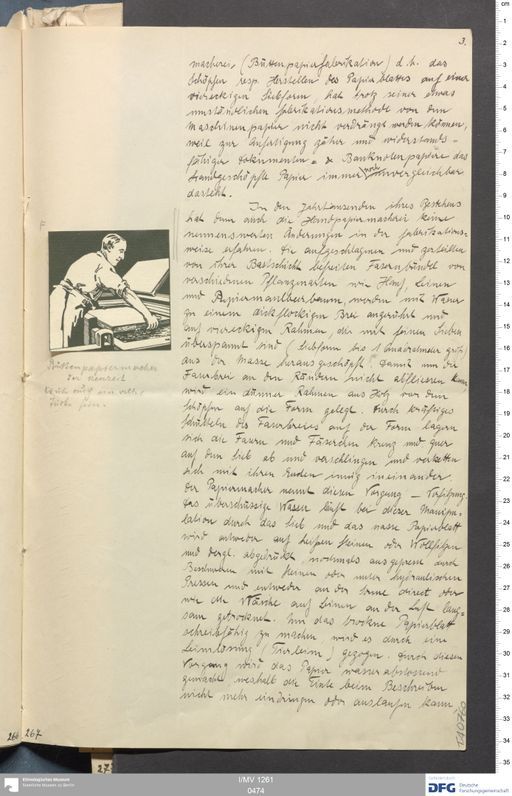 3.
macherei (Büttenpapierfabrikation) d. h. das
Schöpfen resp. Herstellen des Papierblattes auf einer
viereckigen Siebform, hat trotz seiner etwas
umständlichen Fabrikationsmethode von dem
Maschinenpapier nicht verdrängt werden können,
weil zur Anfertigung zäher und widerstands-
fähiger Dokumenten- & Banknotenpapiere das
handgeschöpfte Papier immer noch unvergleichbar
dasteht.
In den Jahrtausenden ihres Bestehens
hat denn auch die Handpapiermacherei keine
nennenswerten Änderungen in der Fabrikations-
weise erfahren. Die aufgeschlagenen und zerteilten
von ihrer Bastschicht befreiten Faserbündel von
verschiedenen Pflanzenarten wie Hanf, Leinen
und Papiermaulbeerbaum, werden mit Wasser
zu einem dickflockigen Brei angerührt und
auf viereckigen Rahmen, die mit feinen Sieben
überspannt sind (Siebform bis 1 Quadratmeter groß)
aus der Masse herausgeschöpft. Damit nun der
Faserbrei an den Rändern nicht abfliessen kann,
wird ein dünner Rahmen aus Holz vor dem
Schöpfen auf die Form gelegt. Durch kräftiges
Schütteln des Faserbreies auf der Form lagern
sich die Fasern und Fäserchen kreuz und quer
auf dem Sieb ab und verschlingen und verketten
sich mit ihren Enden innig ineinander.
Der Papiermacher nennt diesen Vorgang – Verfilzung.
Das überschüssige Wasser läuft bei dieser Manipu-
lation durch das Sieb und das nasse Papierblatt
wird entweder auf heissen Steinen oder Wollfilzen
und dergl. abgedrückt, nochmals ausgepresst durch
Beschweren mit Steinen oder unter hydraulischen
Pressen und entweder an der Sonne direct oder
wie die Wäsche auf Leinen an der Luft lang-
sam getrocknet. Um das trockne Papierblatt
schreibfähig zu machen, wird es durch eine
Leimlösung (Tierleim) gezogen. Durch diesen
Vorgang wird das Papier wasserabstossend
gemacht, weshalb die Tinte beim Beschreiben
nicht mehr eindringen oder auslaufen kann
Büttenpapiermacher
der Neuzeit
266 267
27
Ethnologisches Museum
Staatliche Museen zu Berlin
I/MV 1261
0474
Gefördert durch
DFG Deutsche
Forschungsgemeinschaft
cm
1
2
3
4
5
6
7
8
9
10
11
12
13
14
15
16
17
18
19
20
21
22
23
24
25
26
27
28
29
30
31
32
33
34
35